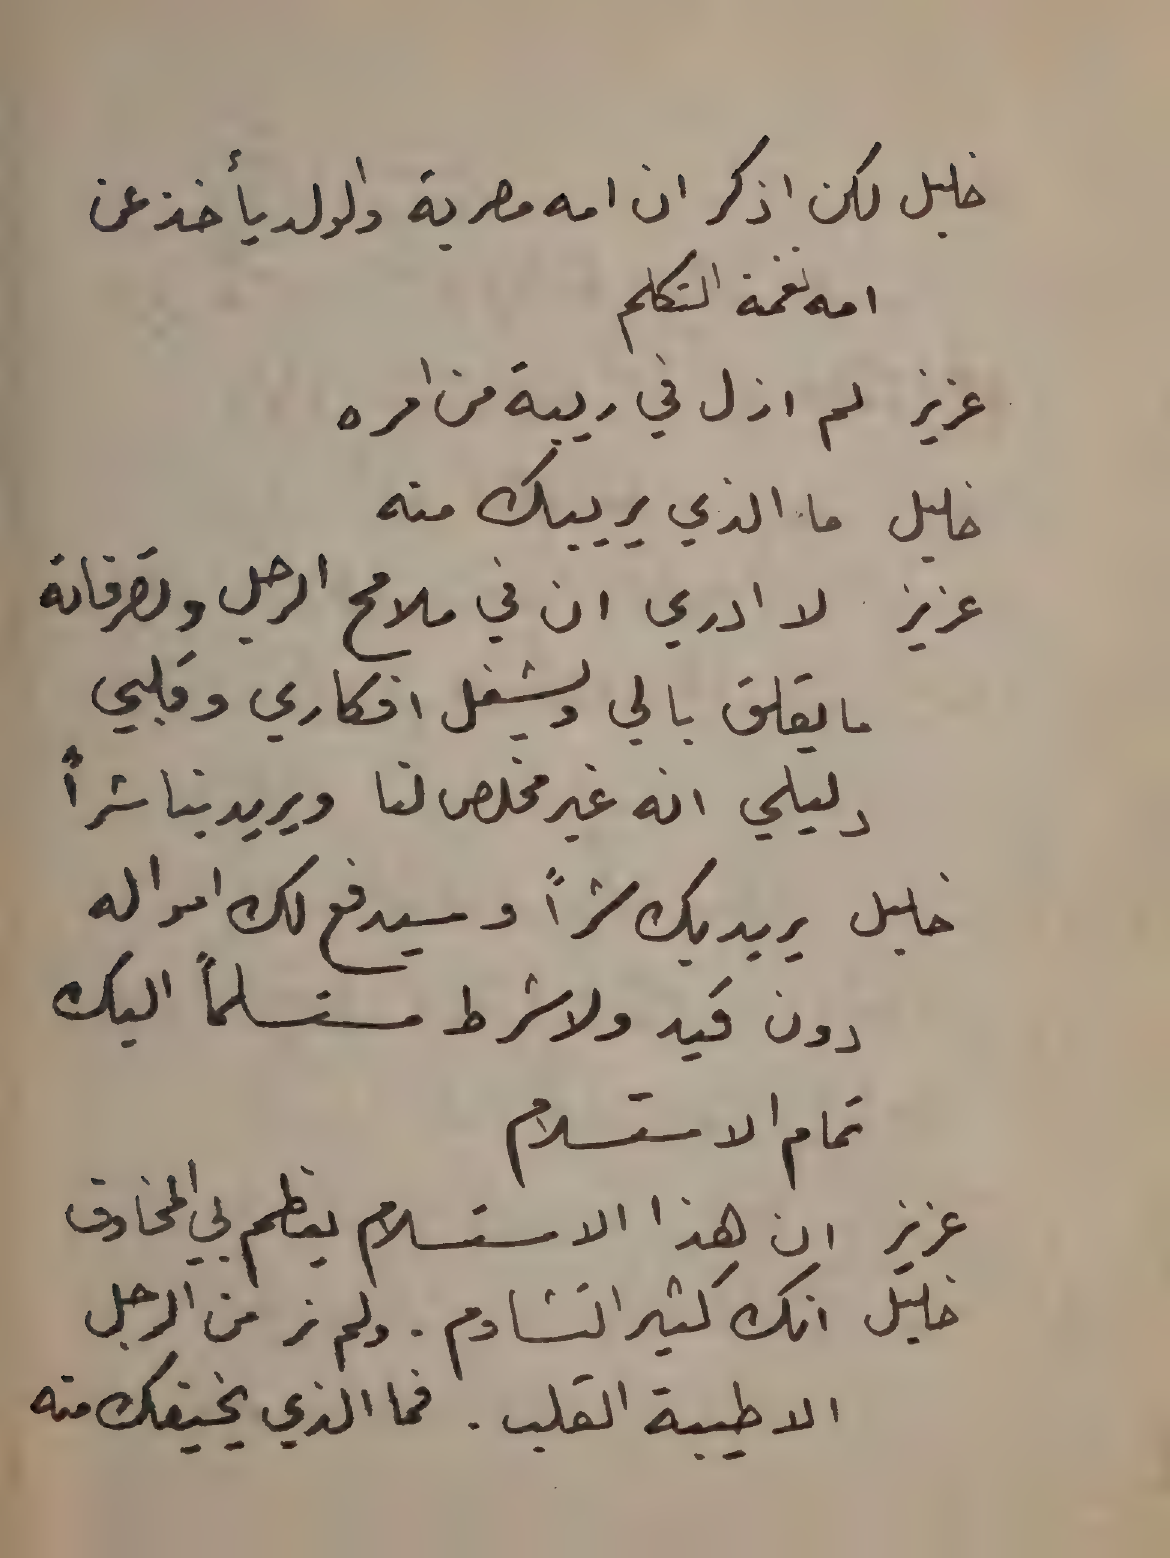 خليل لكن اذكر ان امه مصرية والولد يأخذ عن
امه نغمة التكلم
عزيز لم ازل في ريبة من امره
خليل ما الذي يريبك منه
عزيز لا ادري ان في ملامح الرجل وتصرفاته
ما يقلق بالي ويشغل افكاري وقلبي
دليلي انه غير مخلص لنا ويريد بنا شراً
خليل يريد بك شراً وسيدفع لك امواله
دون قيد ولا شرط مستسلماً اليك
تمام الاستسلام
عزيز ان هذا الاستسلام يعظم بي المخاوف
خليل انك كثير التشاوم . ولم نر من الرجل
الا طيبة القلب . فما الذي يخيفك منه